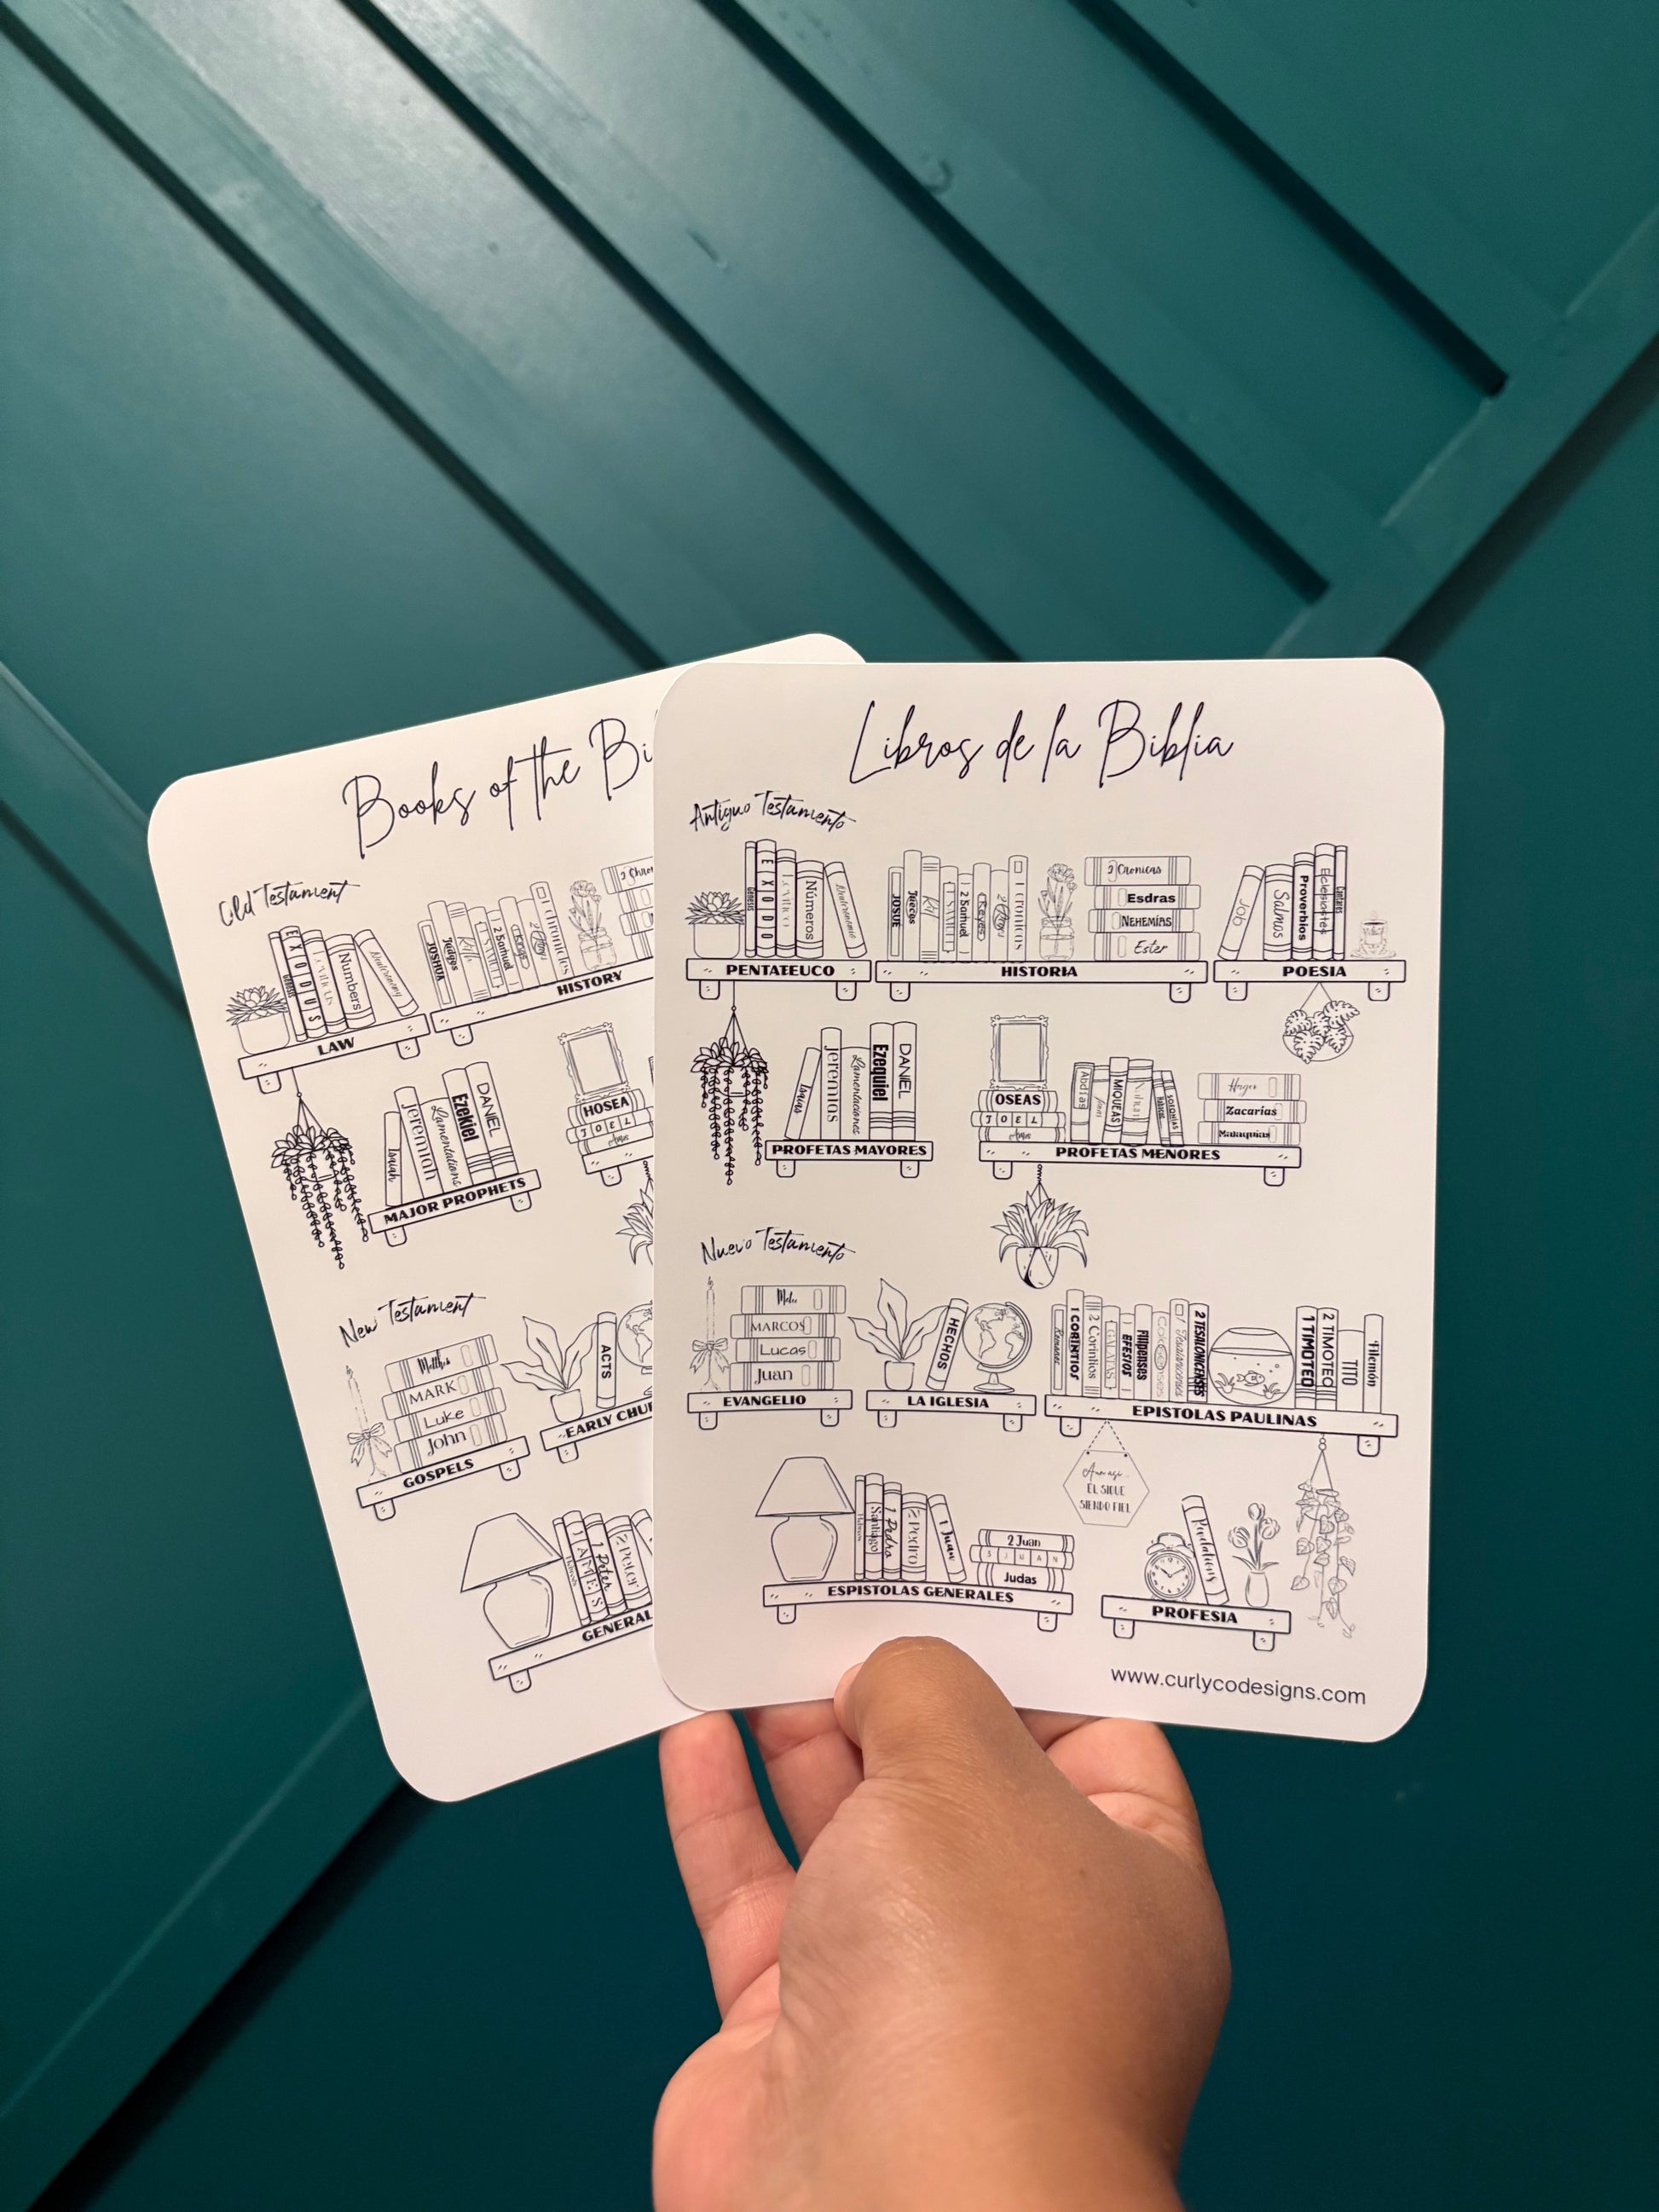 Books of the Bi
Old Testament
Genesis
EXODUS
LEVITICUS
Numbers
Deuteronomy
LAW
JOSHUA
Judges
1 Samuel
2 Samuel
1 chronicles
2 Chron
HISTORY
Isaiah
Jeremiah
Lamentations
Ezekiel
DANIEL
MAJOR PROPHETS
HOSEA
JOEL
Amos
New Testament
MARK
Luke
John
GOSPELS
ACTS
EARLY CHU
JAMES
1 Peter
2 Peter
GENERAL
Libros de la Biblia
Antiguo Testamento
Génesis
EXODO
Números
PENTATEUCO
JOSUE
Jueces
2 Samuel
1 cronicas
2 Cronicas
Esdras
NEHEMÍAS
Ester
HISTORIA
JOB
Salmos
Proverbios
Eclesiastés
Cantares
POESIA
Isaias
Jeremías
Lamentaciones
Ezequiel
DANIEL
PROFETAS MAYORES
OSEAS
JOEL
Amos
Abdías
MIQUEAS
SOFONIAS
Zacarías
Malaquias
PROFETAS MENORES
Nuevo Testamento
MARCOS
Lucas
Juan
EVANGELIO
HECHOS
LA IGLESIA
Romanos
1 CORINTIOS
2 Corintios
GALATAS
EFESIOS
Filipenses
1 Tesalonicenses
2 TESALONICENSES
1 TIMOTEO
2 TIMOTEO
TITO
Filemón
EPISTOLAS PAULINAS
Aun asi...
EL SIGUE
SIENDO FIEL
Santiago
1 Pedro
2 Pedro
1 Juan
2 Juan
3 JUAN
Judas
ESPISTOLAS GENERALES
Revelations
PROFESIA
www.curlycodesigns.com